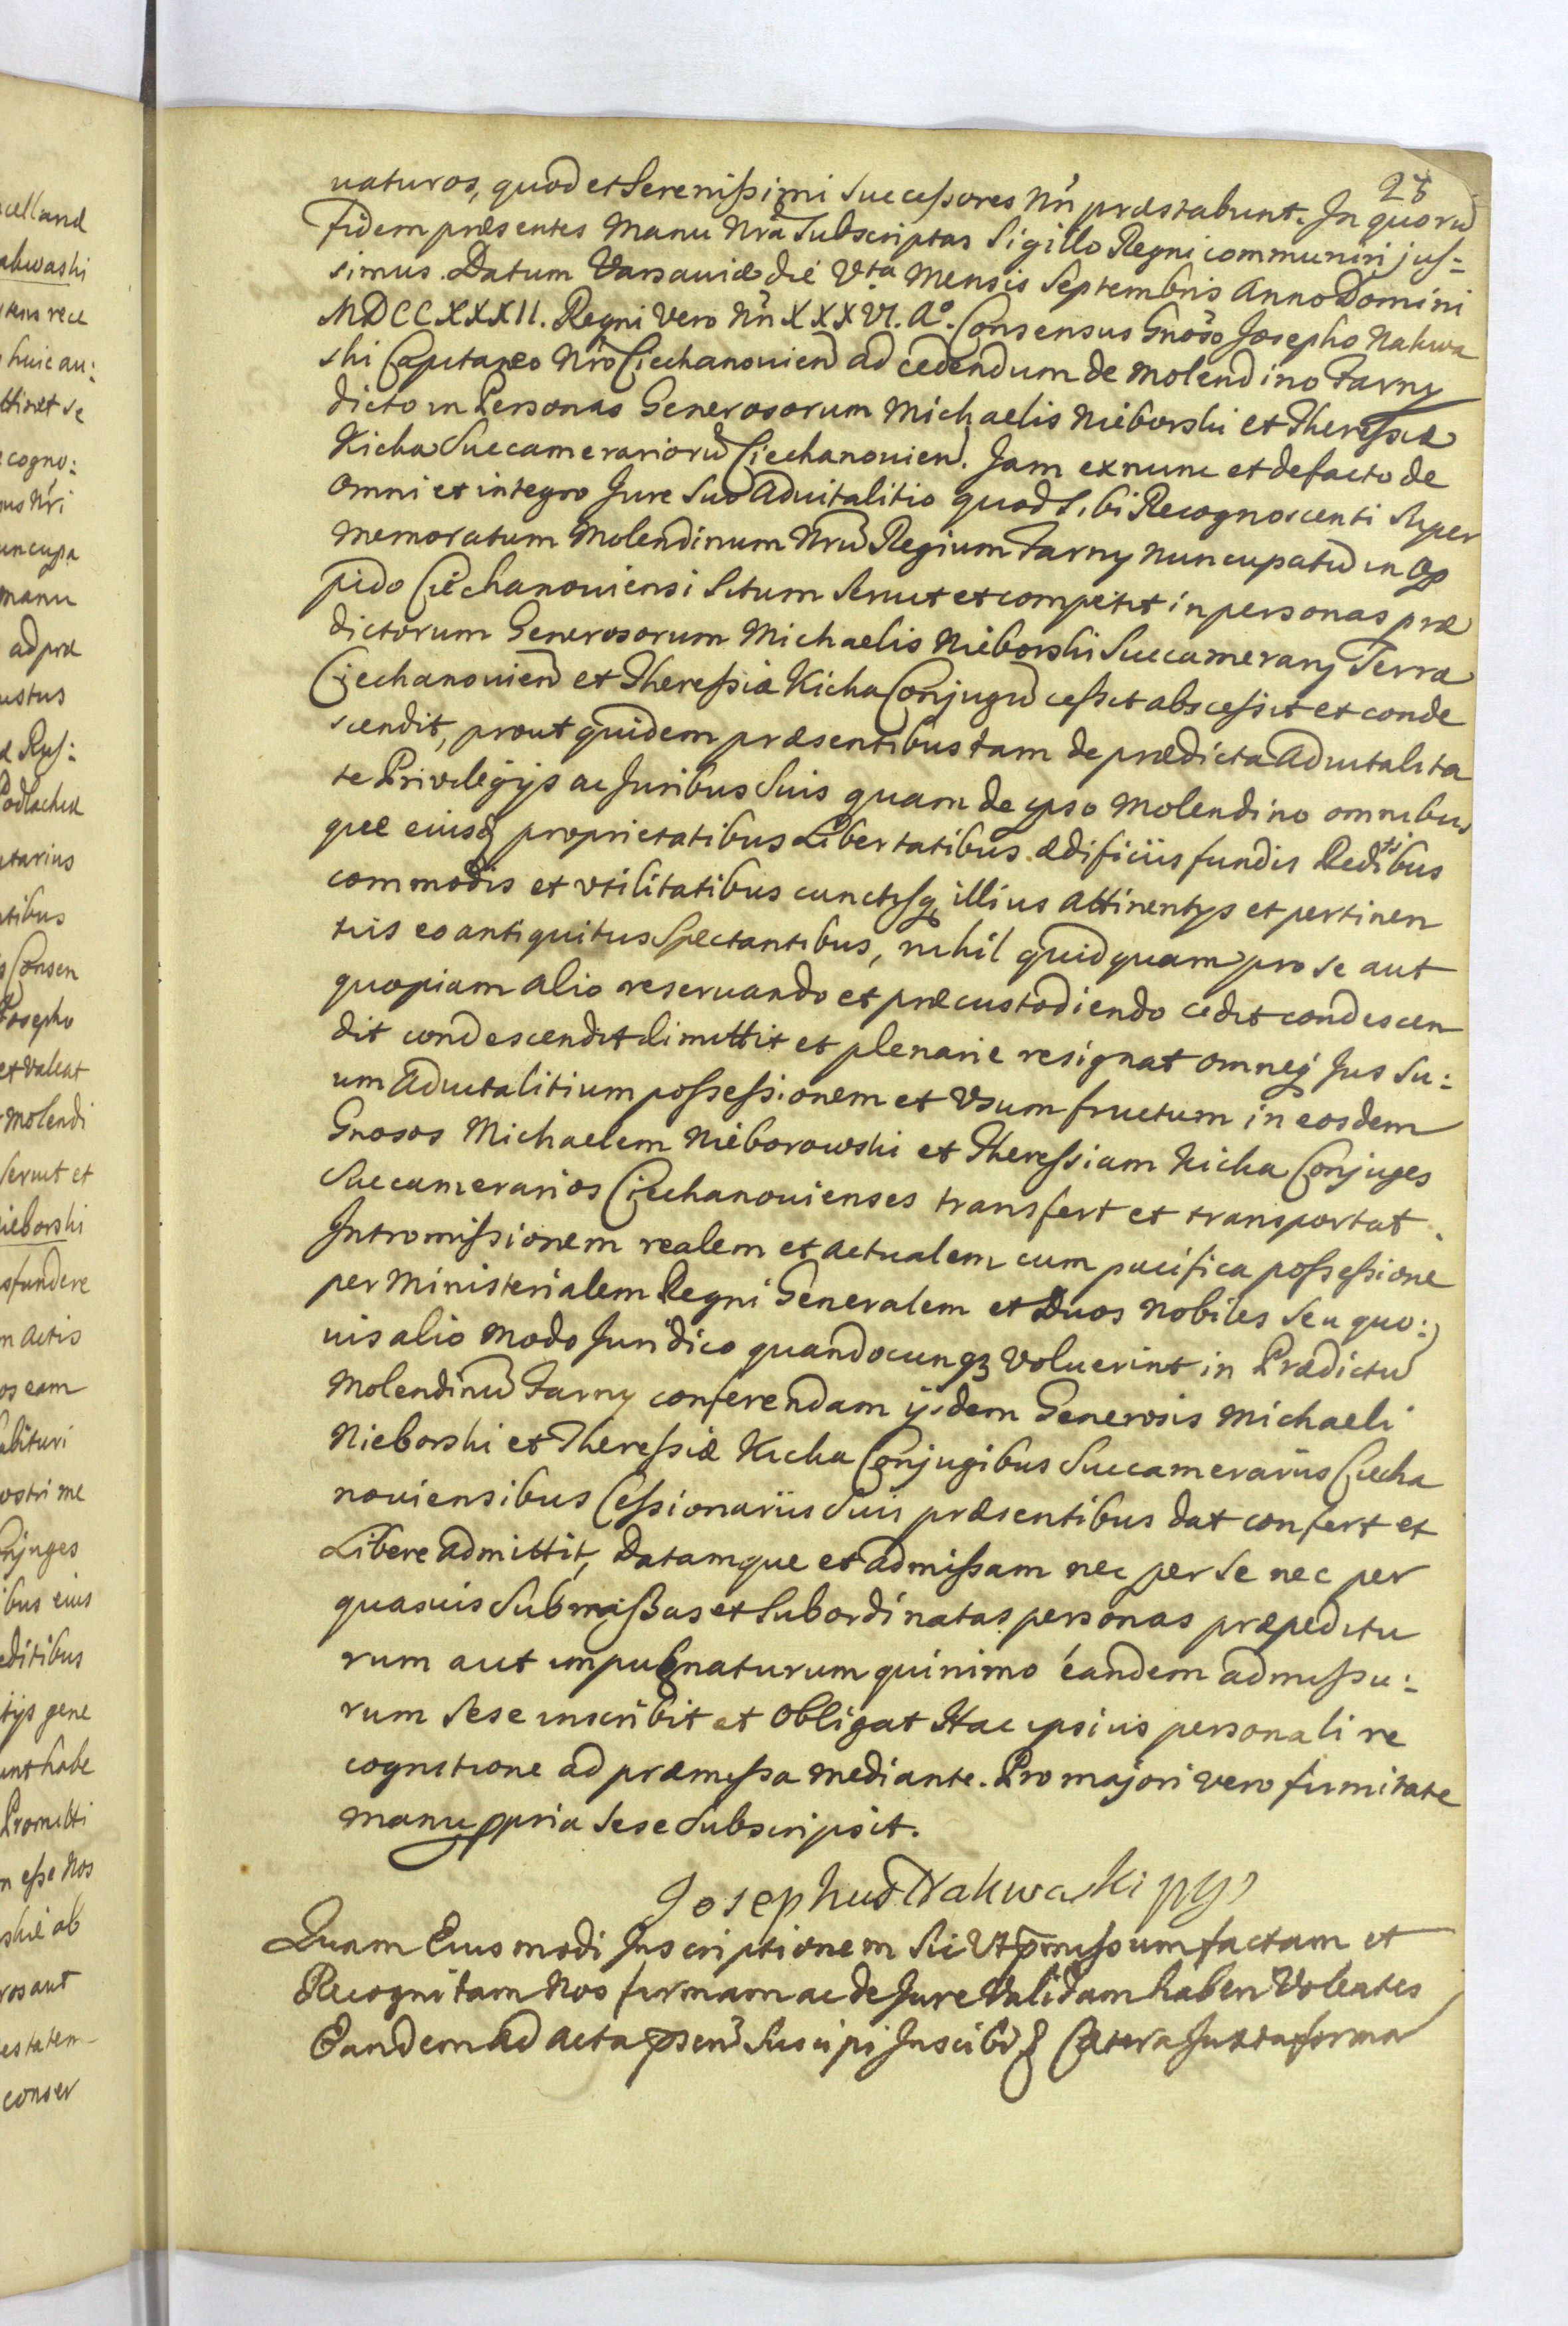 28
uaturos, quod et Serenissimi Successores Nri præstabunt. In quorũ
Fidem præsentes Manu Nrã Subscriptas Sigillo Regni communiri jus=
simus. Datum Varsaviæ die Vta Mensis Septembris Anno Domini
MDCCXXXII. Regni Vero Nri XXXVI. Aº. Consensus Gnoso Josepho Nakwa
ski Capitaneo Nro Ciechanovien ad cedendum de Molendino Farny
dicto in Personas Generosorum Michaelis Nieborski et Theressiæ
Kicka Succamerariorũ Ciechanovien. Jam ex nunc et de facto de
omni et integro Jure Suo Advitalitio quod Sibi Recognoscenti Super
memoratum Molendinum Nrũ Regium Farny nuncupatũ in Op
pido Ciechanoviensi Situm Servit et competit in personas præ
dictorum Generosorum Michaelis Nieborski Succamerarij Terra
Ciechanovien et Theressiæ Kicka Conjugũ cessit abscessit et conde
scendit, prout quidem præsentibus tam de prædicta Advitalita
te Privilegijs ac Juribus Suis quam de ipso Molendino omnibus
que eiusq proprietatibus Libertatibus ædificiis fundis Redibus
ti
commodis et vtilitatibus cunctisq illius attinentijs et pertinen
tiis eo antiquitus Spectantibus, nihil quidquam pro se aut
quopiam alio reservando et præcustodiendo cedit condescen
dit condescendit dimittit et plenarie resignat omneq Jus Su=
um Advitalitium possessionem et Vsumfructum in eosdem
Gnosos Michaelem Nieborowski et Theressiam Kicka Conjuges
Succamerarios Ciechanovienses transfert et transportat.
Intromissionem realem et actualem cum pacifica possessione
per Ministerialem Regni Generalem et Duos Nobiles Seu quo=
vis alio Modo Juridico quandocunq3 Voluerint in Prædictũ
Molendinũ Farny conferendam ijsdem Generosis Michaeli
Nieborski et Theressiæ Kicka Conjugibus Succamerariis Ciecha
noviensibus Cessionariis Suis præsentibus dat confert et
Libere admittit, Datamque et admissam nec per Se nec per
quasvis Submissas et Subordinatas personas præpeditu
rum aut impugnaturum quinimo eandem admissu=
rum Sese inscribit et Obligat Hac ipsius personali re
cognitione ad præmissa mediante. Pro majori vero firmitate
manu ppria Sese Subscripsit.
Josephus Nakwaski
Quam Eiusmodi Inscriptionem Sic Vt præmissum factam et
Recognitam Nos firmam ac de Jure Validam haberi Volentes
Eandem ad Acta psen Suscipi Inscibi Cætera Juxta forma